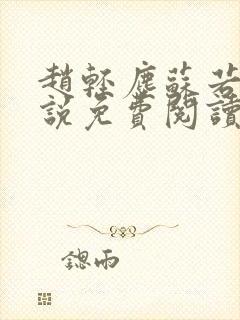 趙輕塵蘇若
說免費閱讀
鍶雨